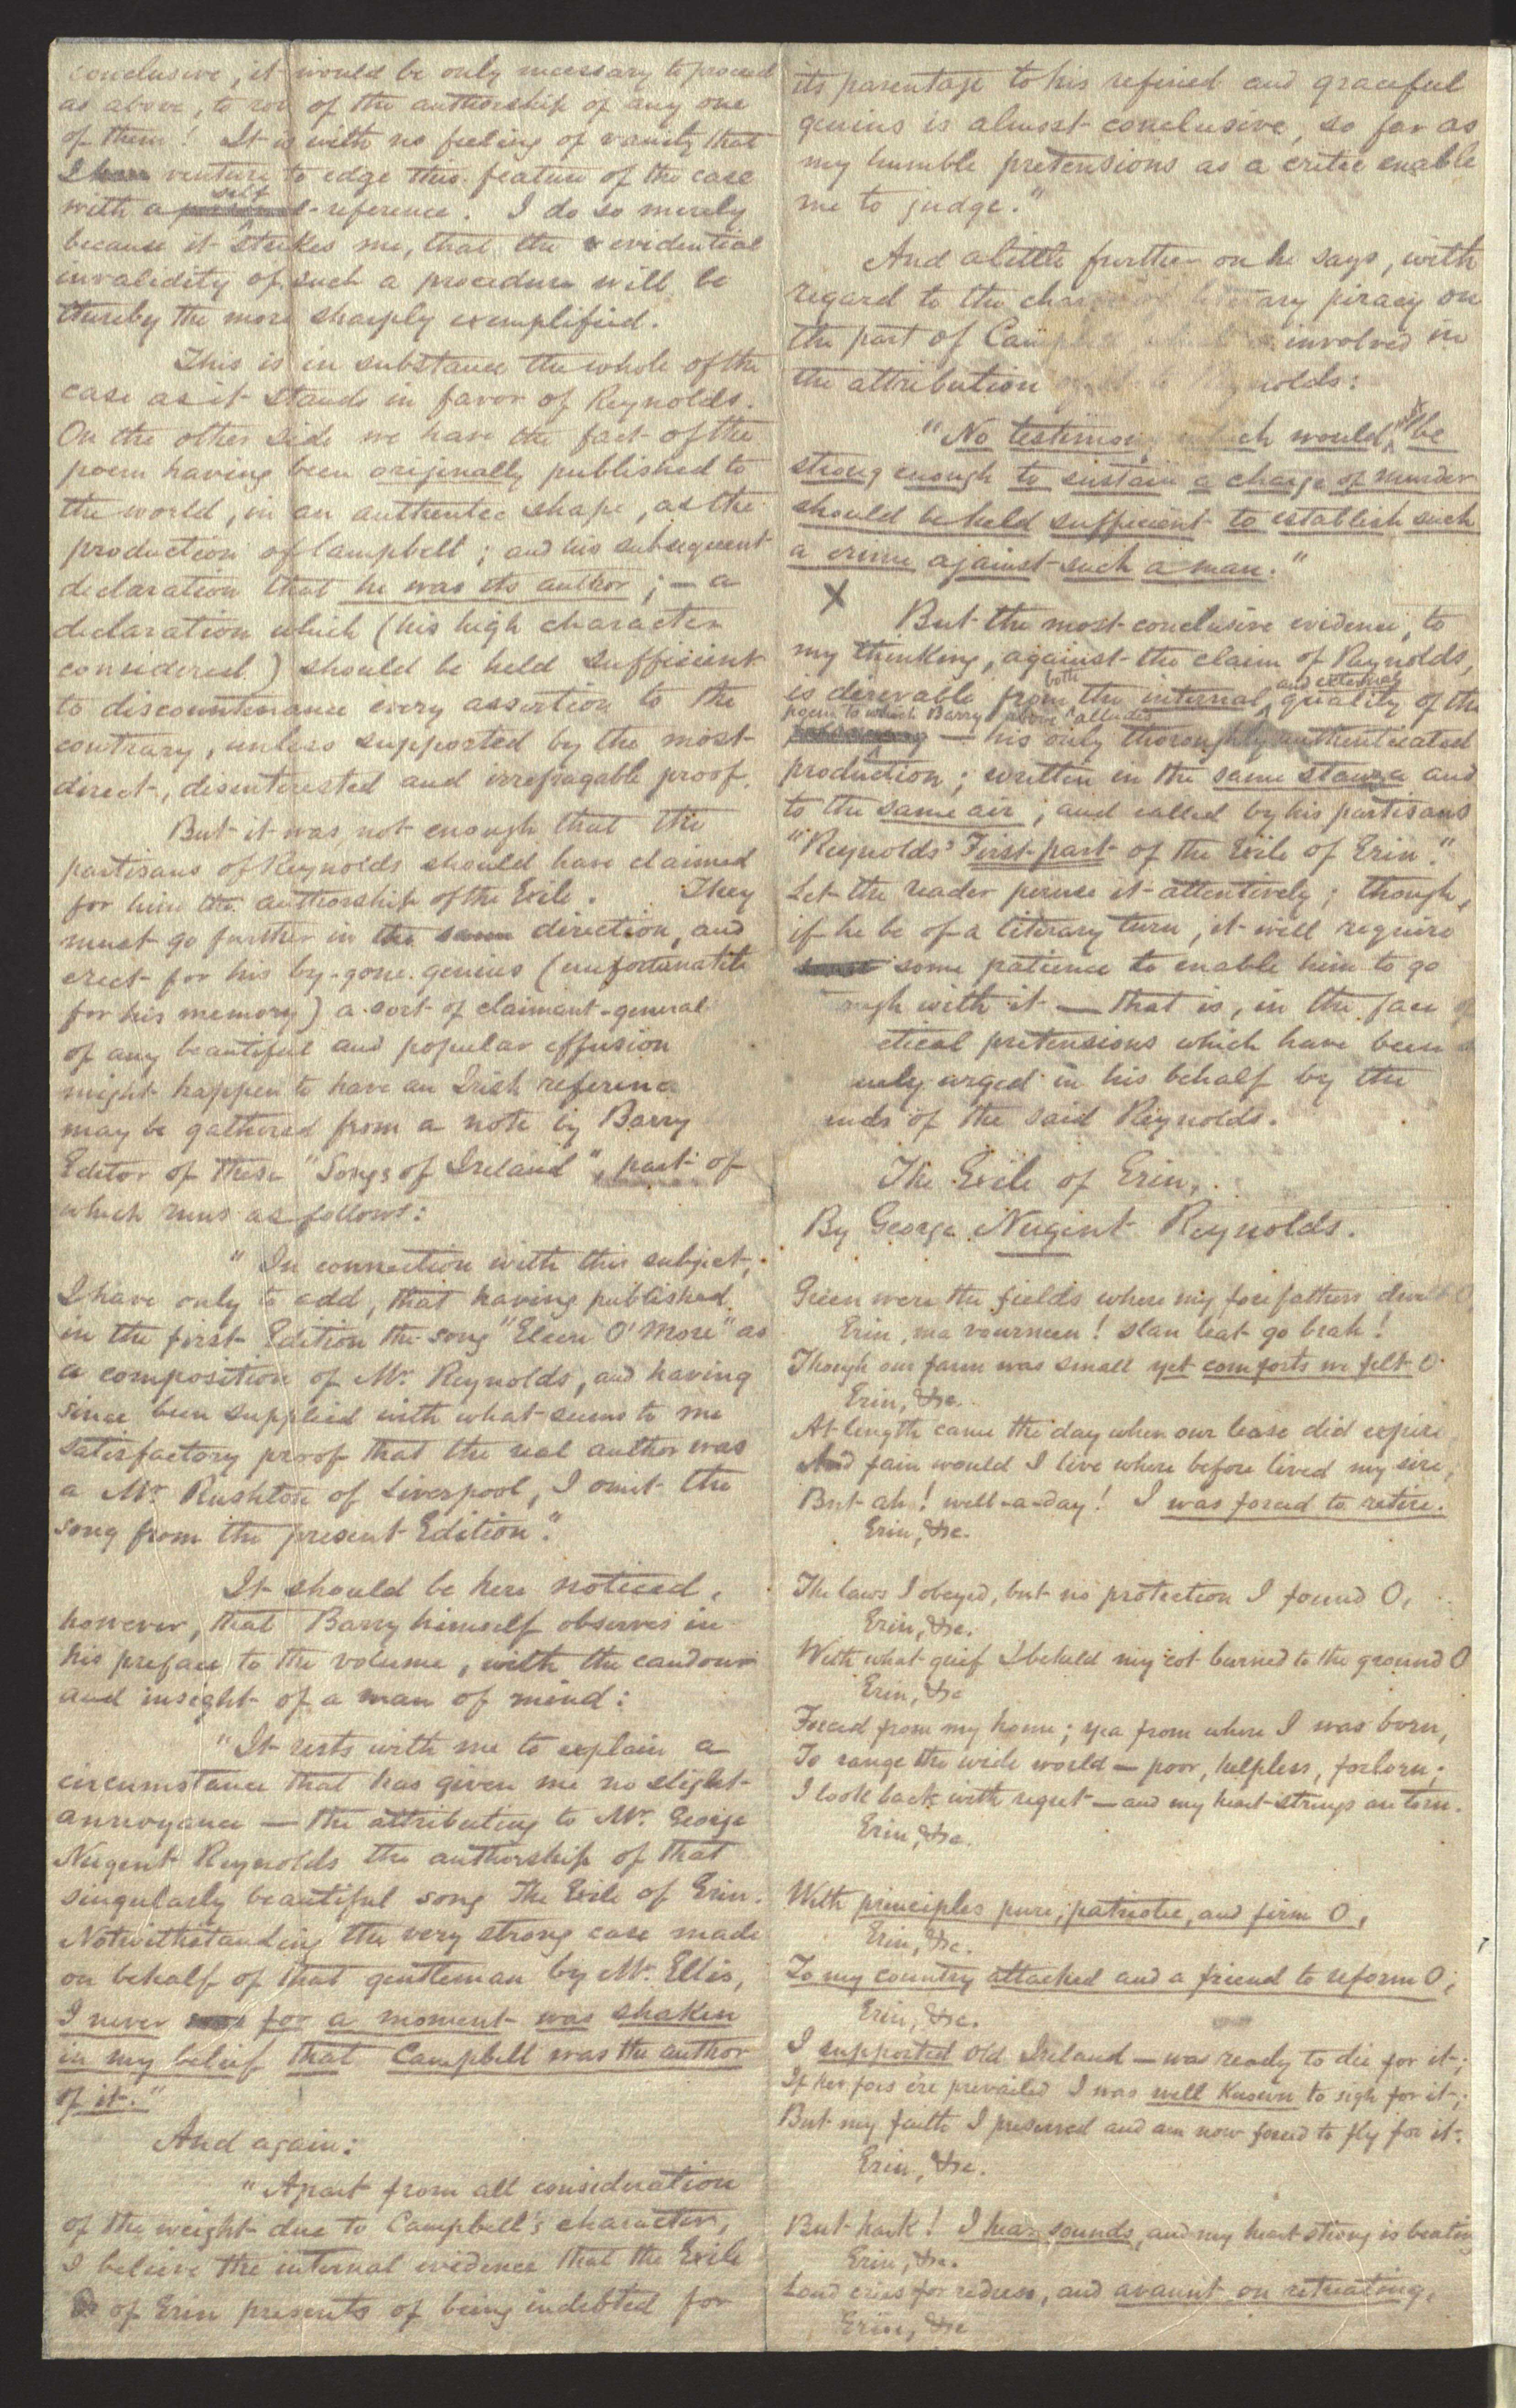 conclusive, it would be only necessary to proceed
as above, to rob of the authorship of any one
of them! It is with no feeling of vanity that
I have venture to edge this feature of the case
with a personal self-reference. I do so merely
because it strikes me, that the evidential
invalidity of such a procedure will be
thereby the more sharply exemplified.
This is in substance the whole of the
case as it stands in favor of Reynolds.
On the other side we have the fact of the
poem having been originally published to
the world, in an authentic shape, as the
production of Campbell; and his subsequent
declaration that he was its author; — a
declaration which (his high character
considered) should be held sufficient
to discountenance every assertion to the
contrary, unless supported by the most
direct, disinterested and irrefragable proof.
But it was not enough that the
partisans of Reynolds should have claimed
for him the authorship of the Exile. They
must go further in the same direction, and
erect for his by-gone genius (unfortunately
for his memory) a sort of claimant-general
of any beautiful and popular effusion
might happen to have an Irish reference
may be gathered from a note by Barry
Editor of these "Songs of Ireland", part of
which runs as follows:
"In connection with this subject,
I have only to add, that having published
in the first Edition the song "Eleen O'More" as
a composition of Mr. Reynolds, and having
since been supplied with what seems to me
satisfactory proof that the real author was
a Mr. Rushton of Liverpool, I omit the
song from the present Edition".
It should be here noticed,
however, that Barry himself observes in
his preface to the volume, with the candour
and insight of a man of mind:
"It rests with me to explain a
circumstance that has given me no slight
annoyance — the attributing to Mr. George
Nugent Reynolds the authorship of that
singularly beautiful song The Exile of Erin.
Notwithstanding the very strong case made
on behalf of that gentleman by Mr. Ellis,
I never for a moment was shaken
in my belief that Campbell was the author
of it."
And again:
"Apart from all consideration
of the weight due to Campbell's character,
I believe the internal evidence that the Exile
of Erin presents of being indebted for
its parentage to his refined and graceful
genius is almost conclusive, so far as
my humble pretensions as a critic enable
me to judge."
And a little further on he says, with
regard to the charge of literary piracy on
the part of Campbell which is involved in
the attribution Reynolds:
"No testimony which would be
strong enough to sustain a charge of murder
should be held sufficient to establish such
a crime against such a man."
X
But the most conclusive evidence, to
my thinking, against the claim of Reynolds,
is derevable from both the internal and external quality of the
poem to which Barry above alluded
— his only thoroughly authenticated
production; written in the same stanza and
to the same air; and called by his partisans
"Reynolds' First part of the Exile of Erin."
Let the reader peruse it attentively; though,
if he be of a literary turn, it will require
some patience to enable him to go
ugh with it — that is, in the face of
etical pretensions which have been
urged in his behalf by the
ends of the said Reynolds.
The Exile of Erin,
By George Nugent Reynolds.
Green were the fields where my forefathers dwelt O,
Erin, ma vourneen! slan leat go brah!
Though our farm was small yet comforts we felt O
Erin, &c.
At length came the day when our lease did expire
And fain would I live where before lived my sire,
But ah! well-a-day! I was forced to retire.
Erin, &c.
The laws I obeyed, but no protection I found O,
Erin, &c.
With what grief I beheld my cot burned to the ground O
Erin, &c
Forced from my home; yea from where I was born,
To range the wide world — poor, helpless, forlorn;
I look back with regret — and my heart-strings are torn.
Erin, &c.
With principles pure, patriotic, and firm O,
Erin, &c.
To my country attached and a friend to reform O;
Erin, &c.
I supported old Ireland — was ready to die for it;
If her foes e're prevailed I was well known to sigh for it;
But my faith I preserved and am now forced to fly for it.
Erin, &c.
But hark! I hear sounds, and my heart strong is beating
Erin, &c.
Loud cries for redress, and avaunt on retreating,
Erin, &c